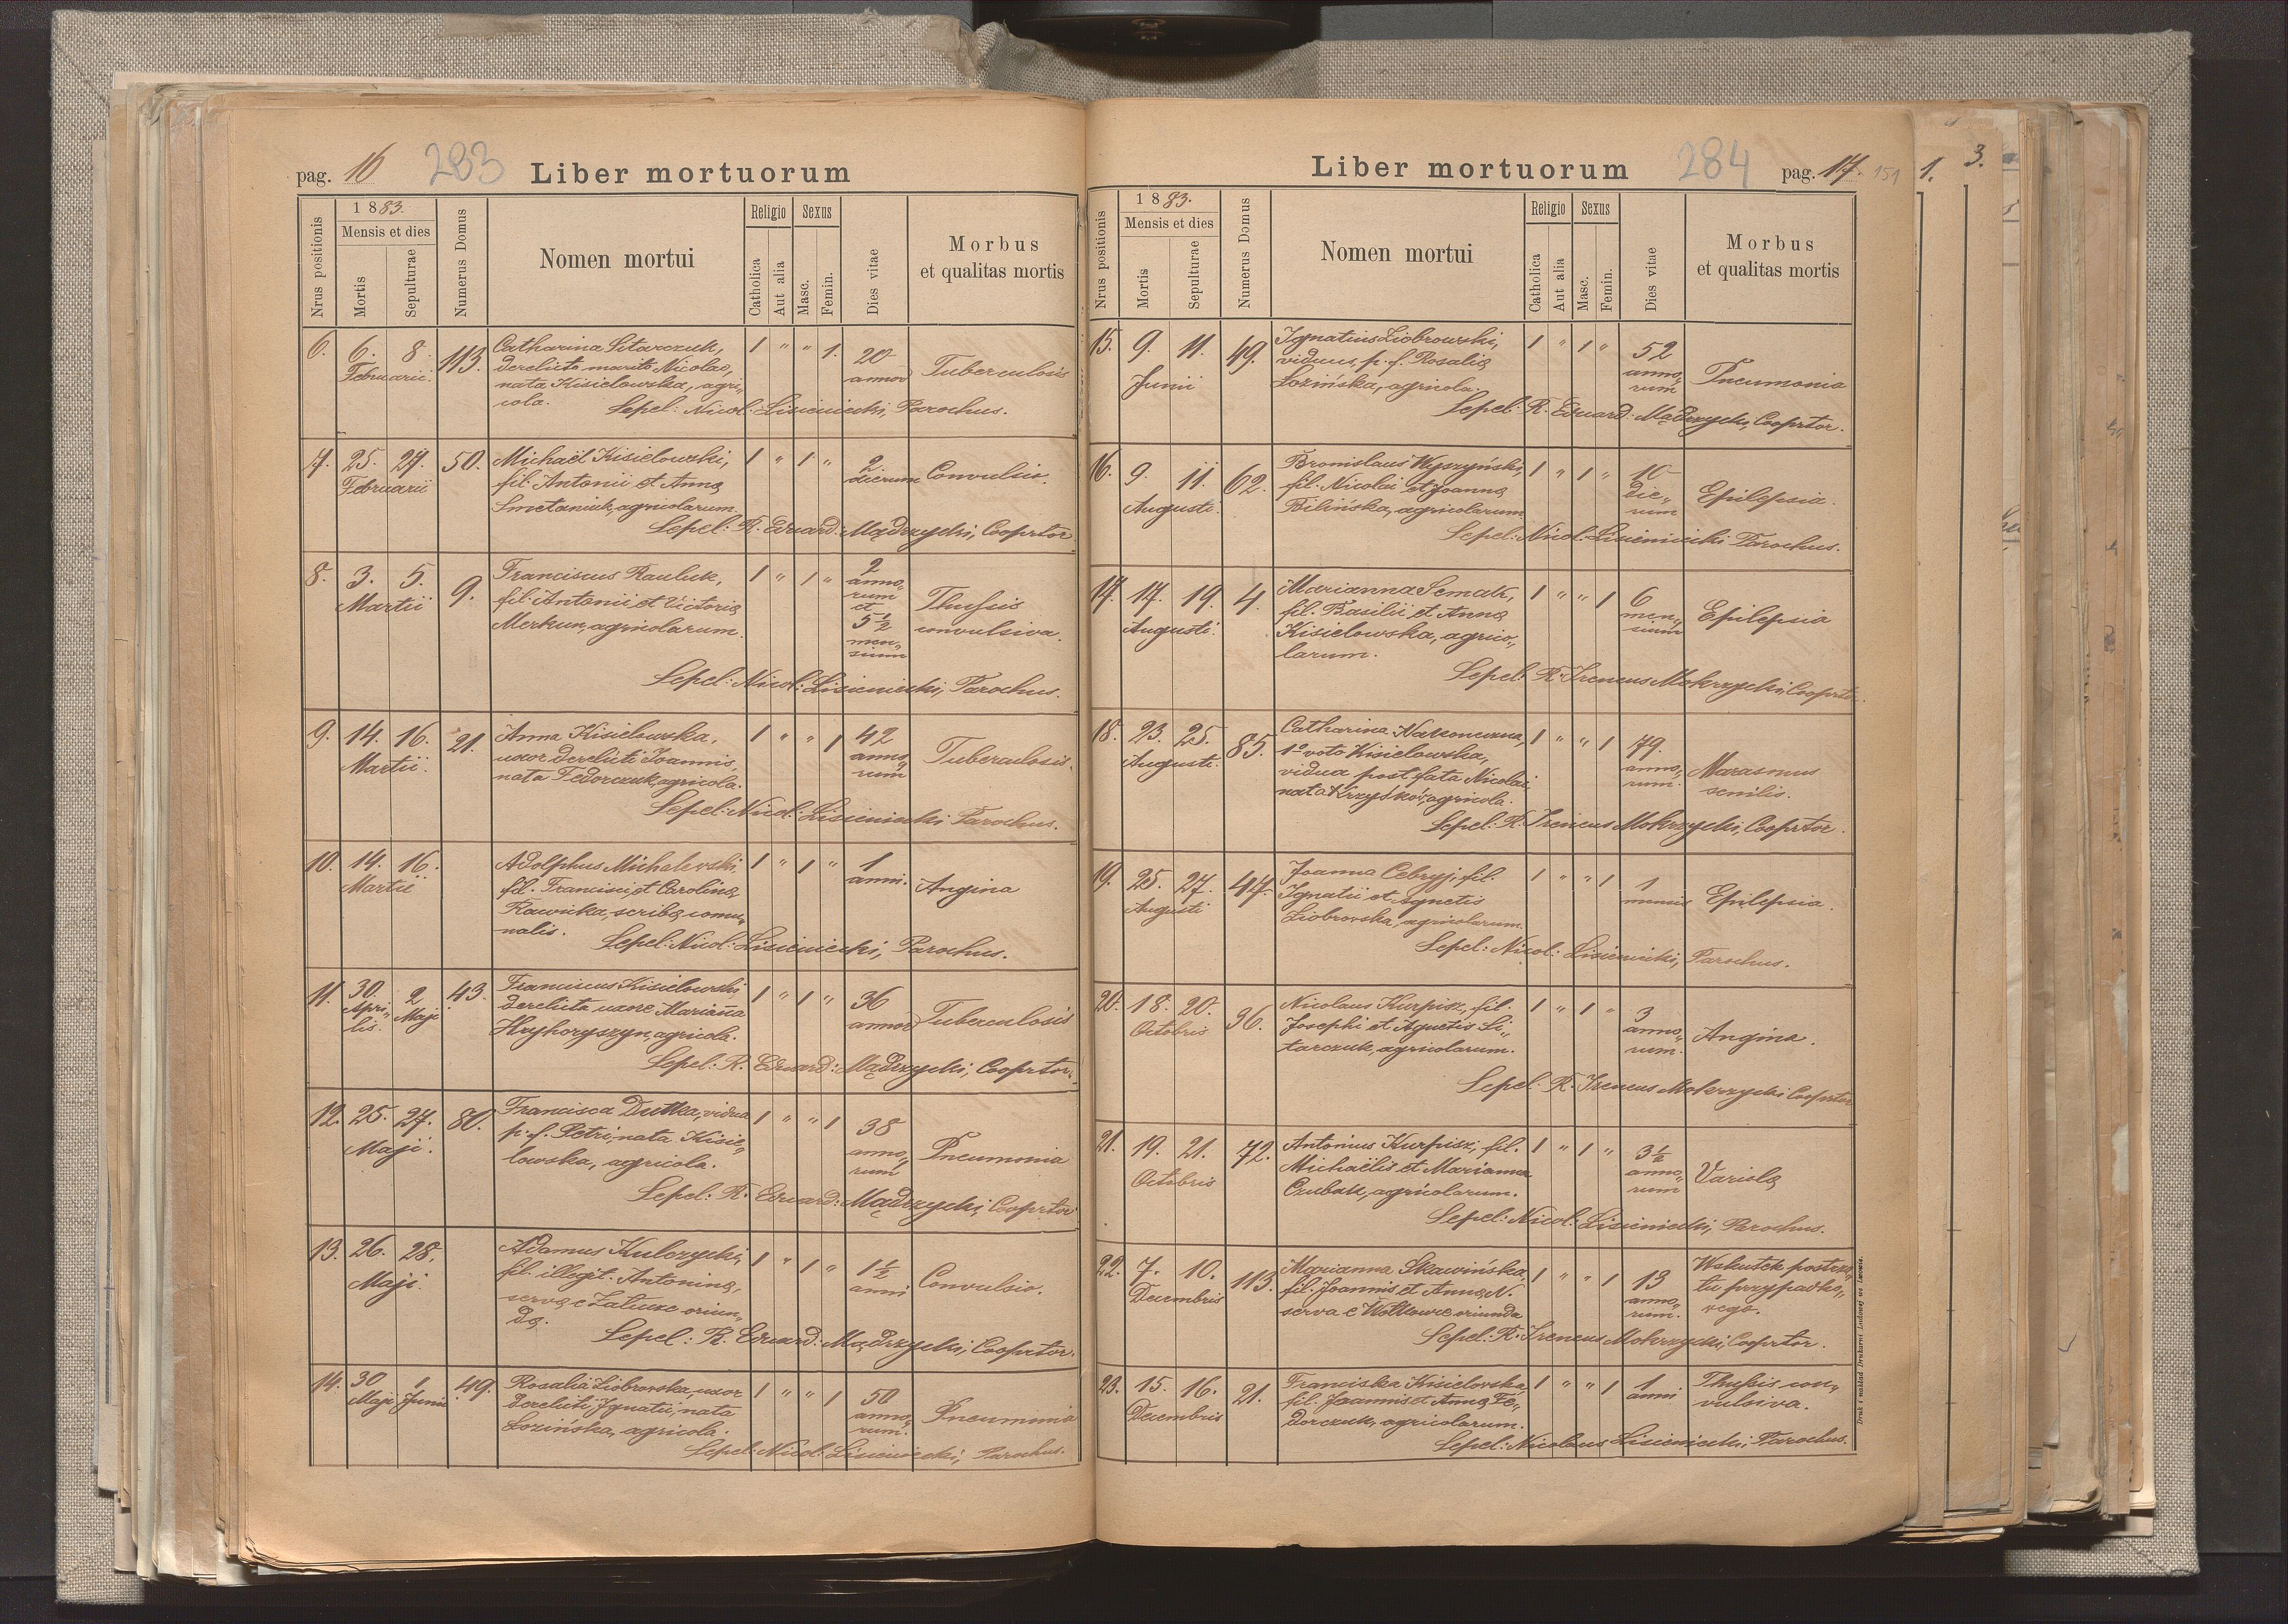 pag. 16 283 Liber mortuorum
Nrus positionis
1883.
Mensis et dies
Mortis
Sepulturae
Numerus Domus
Nomen mortui
Religio
Catholica
Aut alia
Sexus
Masc.
Femin.
Dies vitae
Morbus
et qualitas mortis
6. 6. 8. Februarii. 113. Catharina Sitarczuk, 1 " " 1. 20 annor Tuberculosis
derelicto marito Nicolao,
nata Kisielowska, agri„
cola.
Sepel: Nicol: Lisieniecki, Parochus.
7. 25. 27. Februarii 50. Michaël Kisielowski, 1 " 1 " 2 dierum Convulsio.
fil. Antonii et Annę
Smetaniuk, agricolarum
Sepel: R. Eduard: Mądrzycki, Cooprtor
8. 3. 5. Martii 9. Franciscus Rauluk, 1 " 1 " 2 anno„rum et 5½ men„sium Thussis convulsiva.
fil. Antonii et Victorię
Merkun, agricolarum.
Sepel: Nicol: Lisieniecki, Parochus.
9. 14. 16. Martii. 21. Anna Kisielowska, 1 " " 1 42 anno„rum Tuberculosis.
uxor derelicti Joannis,
nata Fedorczuk, agricola.
Sepel: Nicol: Lisieniecki Parochus.
10. 14. 16. Martii Adolphus Michalewski, 1 " 1 " 1 anni. Angina
fil. Francisci et Carolinę
Rawicka, scribę comu„
nalis.
Sepel: Nicol: Lisieniecki, Parochus.
11. 30. Apri„lis. 2 Maji 43. Franciscus Kisielowski 1 " 1 " 36 annor Tuberculosis
derelicta uxore Marianna
Hryhoryszyn, agricola.
Sepel: R. Eduard: Mądrzycki, Cooprtor.
12. 25. 27. Maji. 80. Francisca Dutka, vidua 1 " " 1 38 anno„rum Pneumonia
p. f. Petri, nata Kisie„
lowska, agricola.
Sepel: R. Eduard: Mądrzycki, Cooprtor
13. 26. 28. Maji. Adamus Kulczycki, 1 " 1 " 1½ anni Convulsio.
fil. illegit. Antoninę,
servę e Załucze oriun„
dę.
Sepel: R. Eduard: Mądrzycki, Cooprtor.
14. 30 Maji 1. Junii 49. Rosalia Ziobrowska, uxor 1 " " 1 50 anno„rum. Pneumonia
derelicti Ignatii, nata
Łozińska, agricola.
Sepel: Nicol: Lisieniecki, Parochus.
Liber mortuorum 284 pag. 17. 151
Nrus positionis
1883.
Mensis et dies
Mortis
Sepulturae
Numerus Domus
Nomen mortui
Religio
Catholica
Aut alia
Sexus
Masc.
Femin.
Dies vitae
Morbus
et qualitas mortis
15. 9. 11. Junii 49. Ignatius Ziobrowski, 1 " 1 " 52 anno„rum Pneumonia
viduus p. f. Rosalię
Łozińska, agricola.
Sepel: R. Eduard: Mądrzycki, Cooprtor.
16. 9. 11. Augusti. 62. Bronislaus Wyszyński, 1 " 1 " 10 die„rum Epilepsia.
fil. Nicolai et Joannę
Bilińska, agricolarum
Sepel: Nicol: Lisieniecki Parochus.
17. 17. 19. Augusti. 4. Marianna Semak, 1 " " 1 6 men„sium Epilepsia
fil. Basilii et Annę
Kisielowska, agrico„
larum.
Sepel: R. Ireneus Mokrzycki, Cooprtor.
18. 23. 25. Augusti. 85. Catharina 1 " " 1 79. anno„rum. Marasmus senilis.
1º voto Kisielowska,
vidua post fata Nicolai,
nata Krzyśków, agricola.
Sepel: R. Ireneus Mokrzycki, Cooprtor.
19. 25. 27. Augusti 47. Joanna Cebryj, fil. 1 " " 1 1 mensis Epilepsia.
Ignatii et Agnetis
Ziobrovska, agricolarum.
Sepel: Nicol: Lisieniecki, Parochus.
20. 18. 20. Octobris 96. Nicolaus Kurpisz, fil 1 " 1 " 3 anno„rum. Angina.
Josephi et Agnetis Si„
tarczuk, agricolarum.
Sepel: R. Ireneus Mokrzycki Cooprtor
21. 19. 21. Octobris 72. Antonius Kurpisz, fil. 1 " 1 " 3½ anno„rum Variolę
Michaëlis et Marianna
Czubak, agricolarum.
Sepel: Nicol: Lisieniecki, Parochus.
22. 7. 10. Decembris 113. Marianna Skawińska, 1 " " 1 13 anno„rum. Wskutek postrza„
fil. Joannis et Annę N. tu przypadko„
serva e Wołkowce oriunda wego.
Sepel: R. Ireneus Mokrzycki, Cooprtor.
23. 15. 16. Decembris 21. Franciska Kisielovska, 1 " " 1 1 anni Thussis con„
fil. Joannis et Annę Fe„ vulsiva.
dorczuk, agricolarum.
Sepel: Nicolaus Lisieniecki, Parochus.
Druk i nakład Drukarni Ludowej we Lwowie.
1.
3.